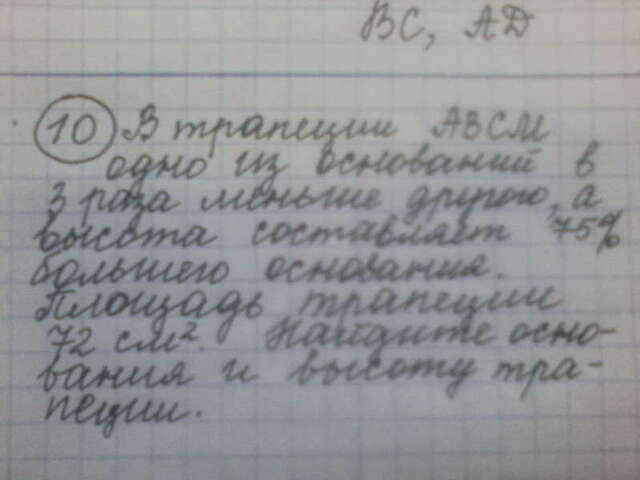 BC, AD
10 В трапеции ABCM
одно из оснований в
3 раза меньше другого, а
высота составляет 75%
большего основания.
Площадь трапеции
72 см². Найдите осно-
вания и высоту тра-
пеции.